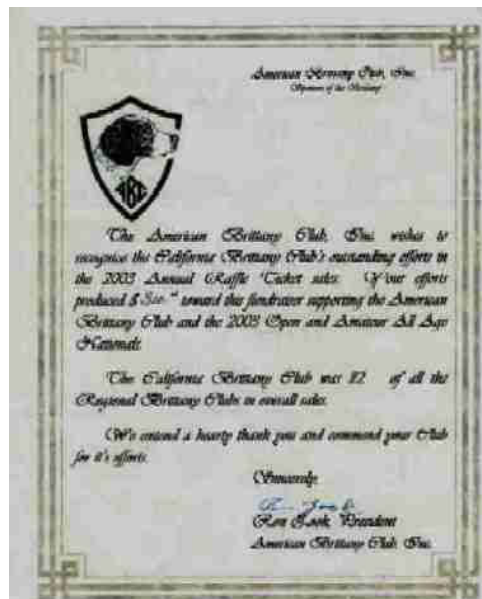 American Brittany Club, Inc.
Sponsors of the Brittany
ABC
The American Brittany Club, Inc. wishes to
recognize the California Brittany Club's outstanding efforts in
the 2003 Annual Raffle Ticket sales. Your efforts
produced $ toward this fundraiser supporting the American
Brittany Club and the 2003 Open and Amateur All Age
Nationals.
The California Brittany Club was #2 of all the
Regional Brittany Clubs in overall sales.
We extend a hearty thank you and commend your Club
for it's efforts.
Sincerely,
Ron Zook, President
American Brittany Club, Inc.